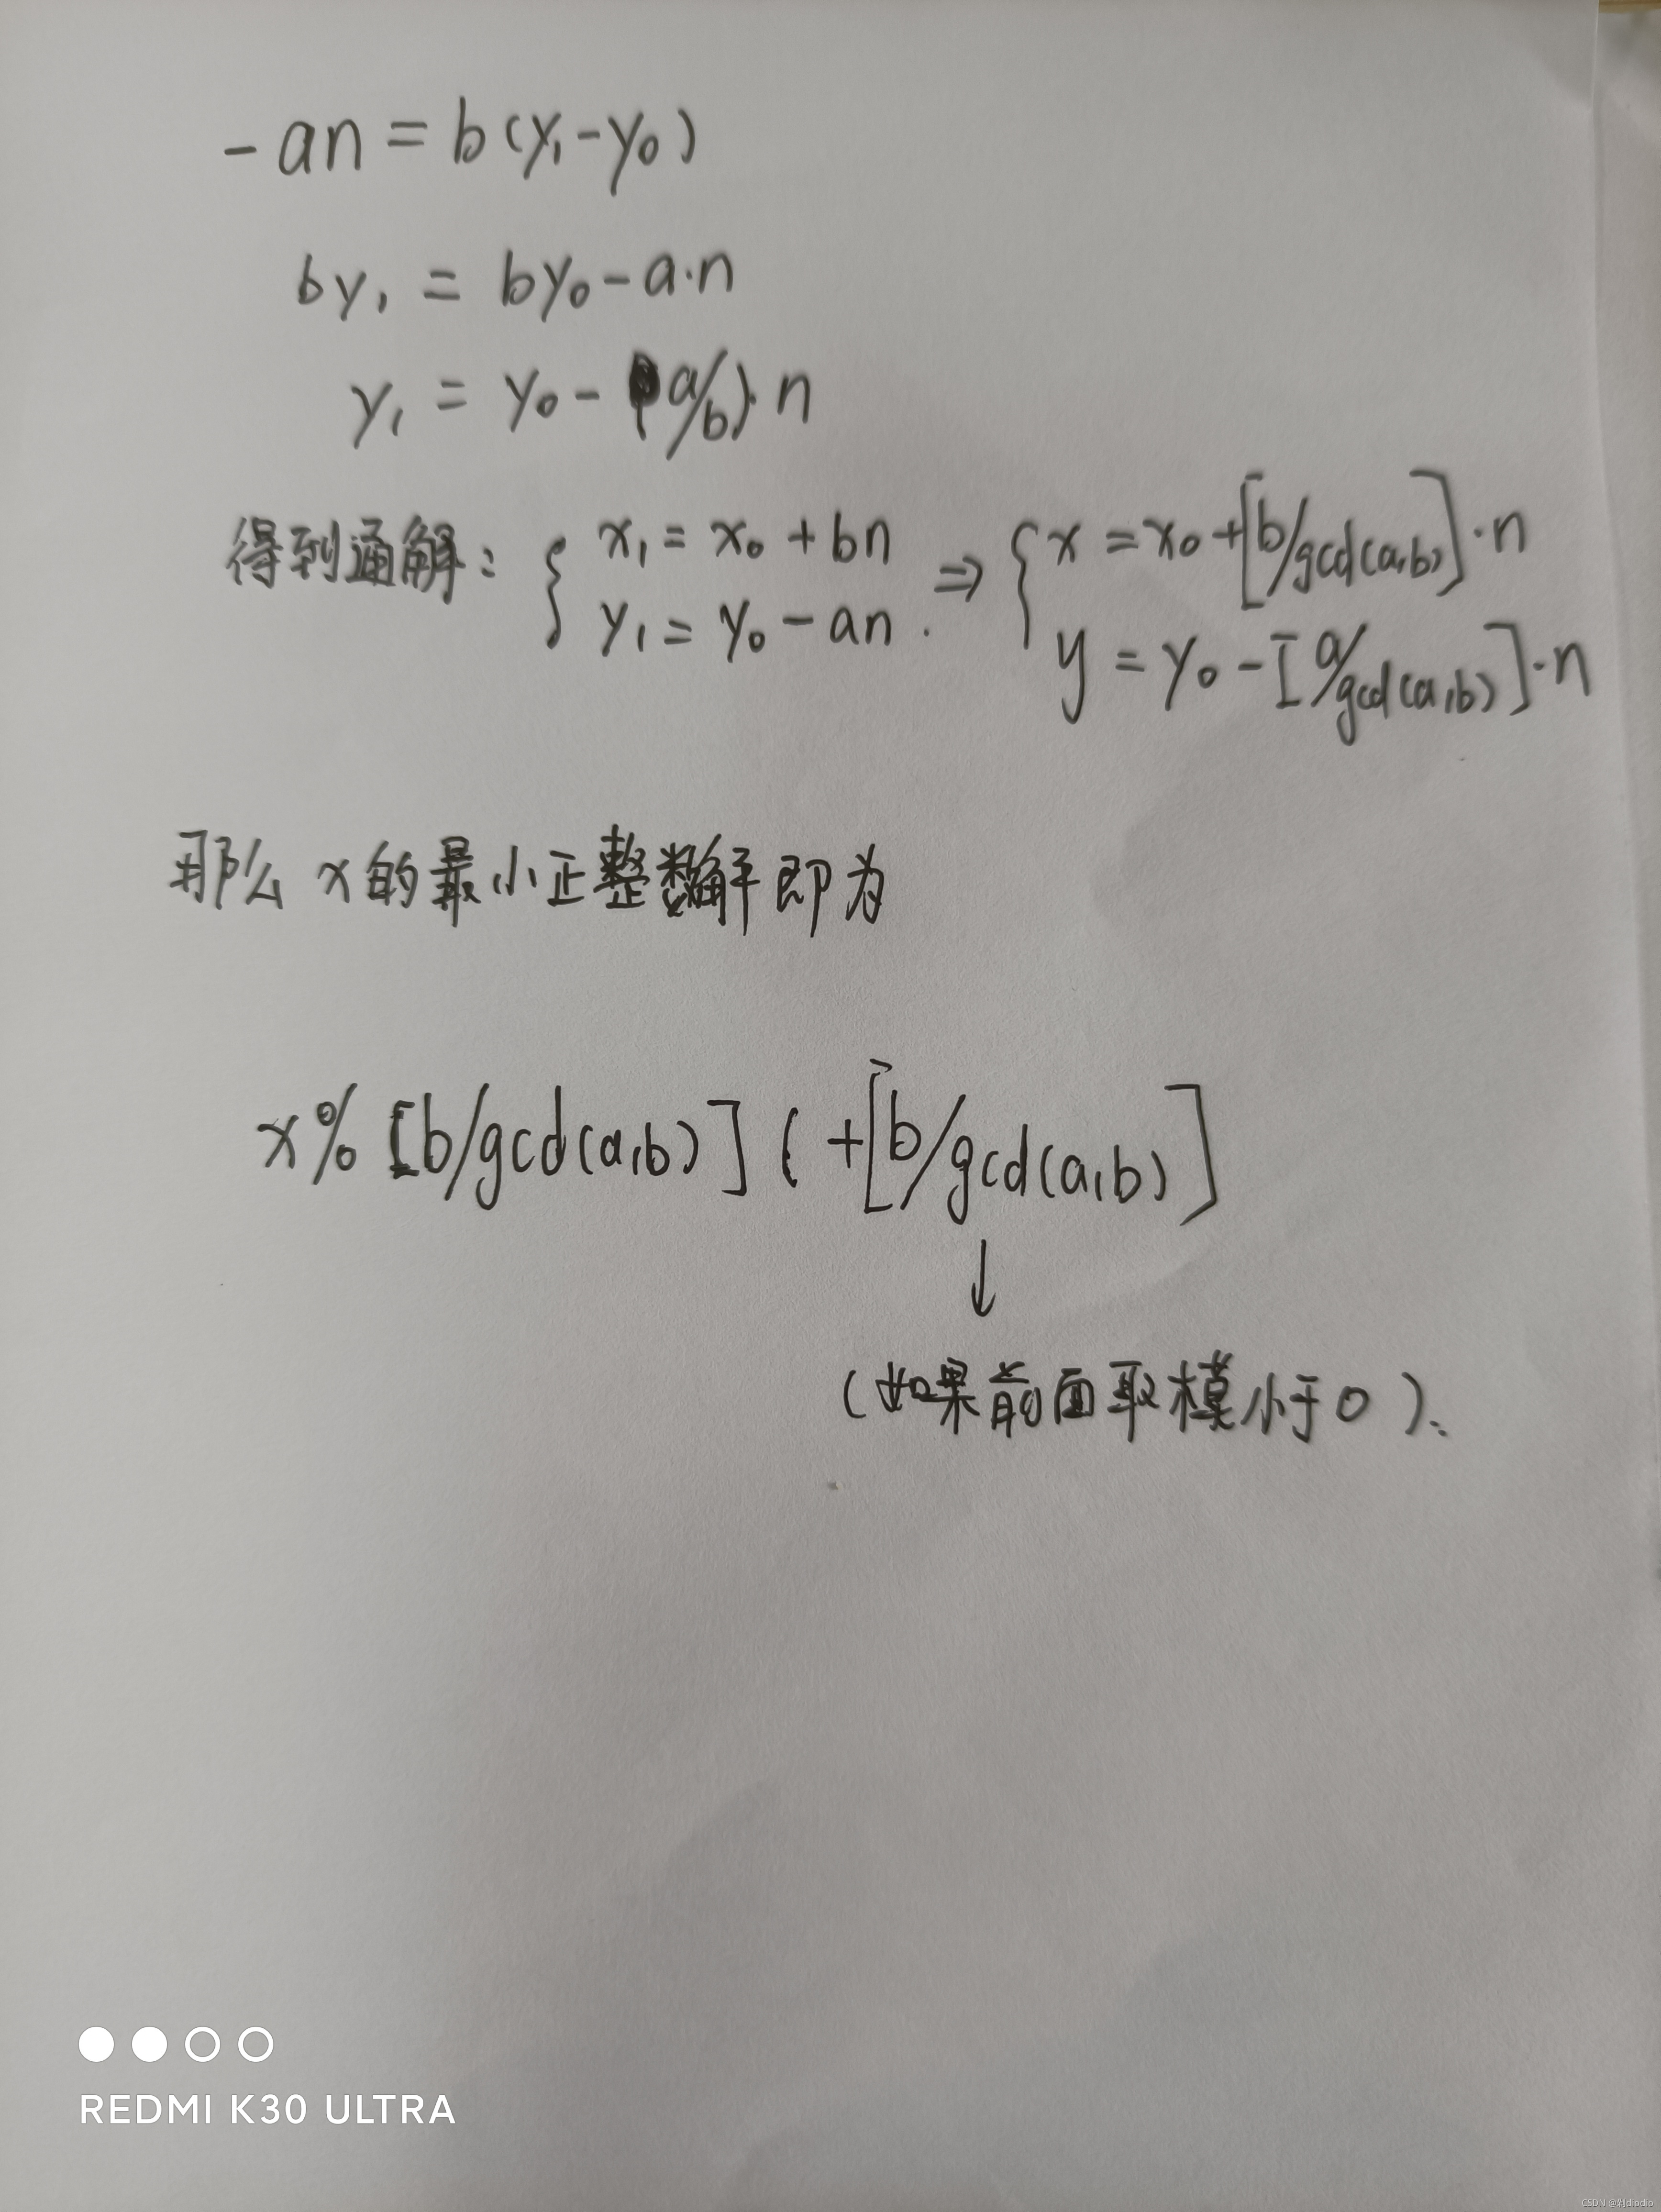 -an = b(y₁-y₀)
by₁ = by₀-a·n
y₁ = y₀-(a/b)·n
得到通解: { x₁ = x₀+bn ⇒ { x = x₀+[b/gcd(a,b)]·n
y₁ = y₀-an. y = y₀-[a/gcd(a,b)]·n
那么x的最小正整数解即为
x% [b/gcd(a,b)] ( +[b/gcd(a,b)]
↓
(如果前面取模小于0).
REDMI K30 ULTRA
CSDN @剁diodio